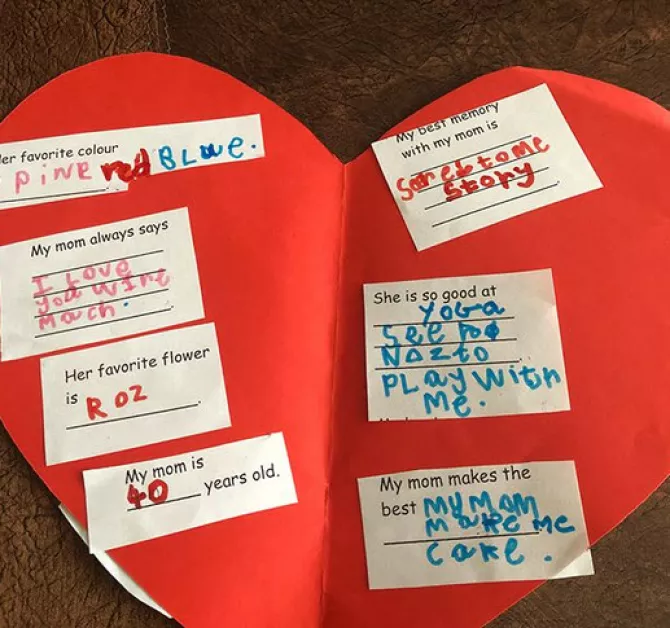 er favorite colour
PiNK red BLUe.
My mom always says
I Love
you Wire
Mach.
Her favorite flower
is ROZ
My mom is
40 years old.
My best memory
with my mom is
to Me
Story
She is so good at
YOGA
See
NOZ to
PLAY With
Me.
My mom makes the
best MY MOM
Make Me
Cake.